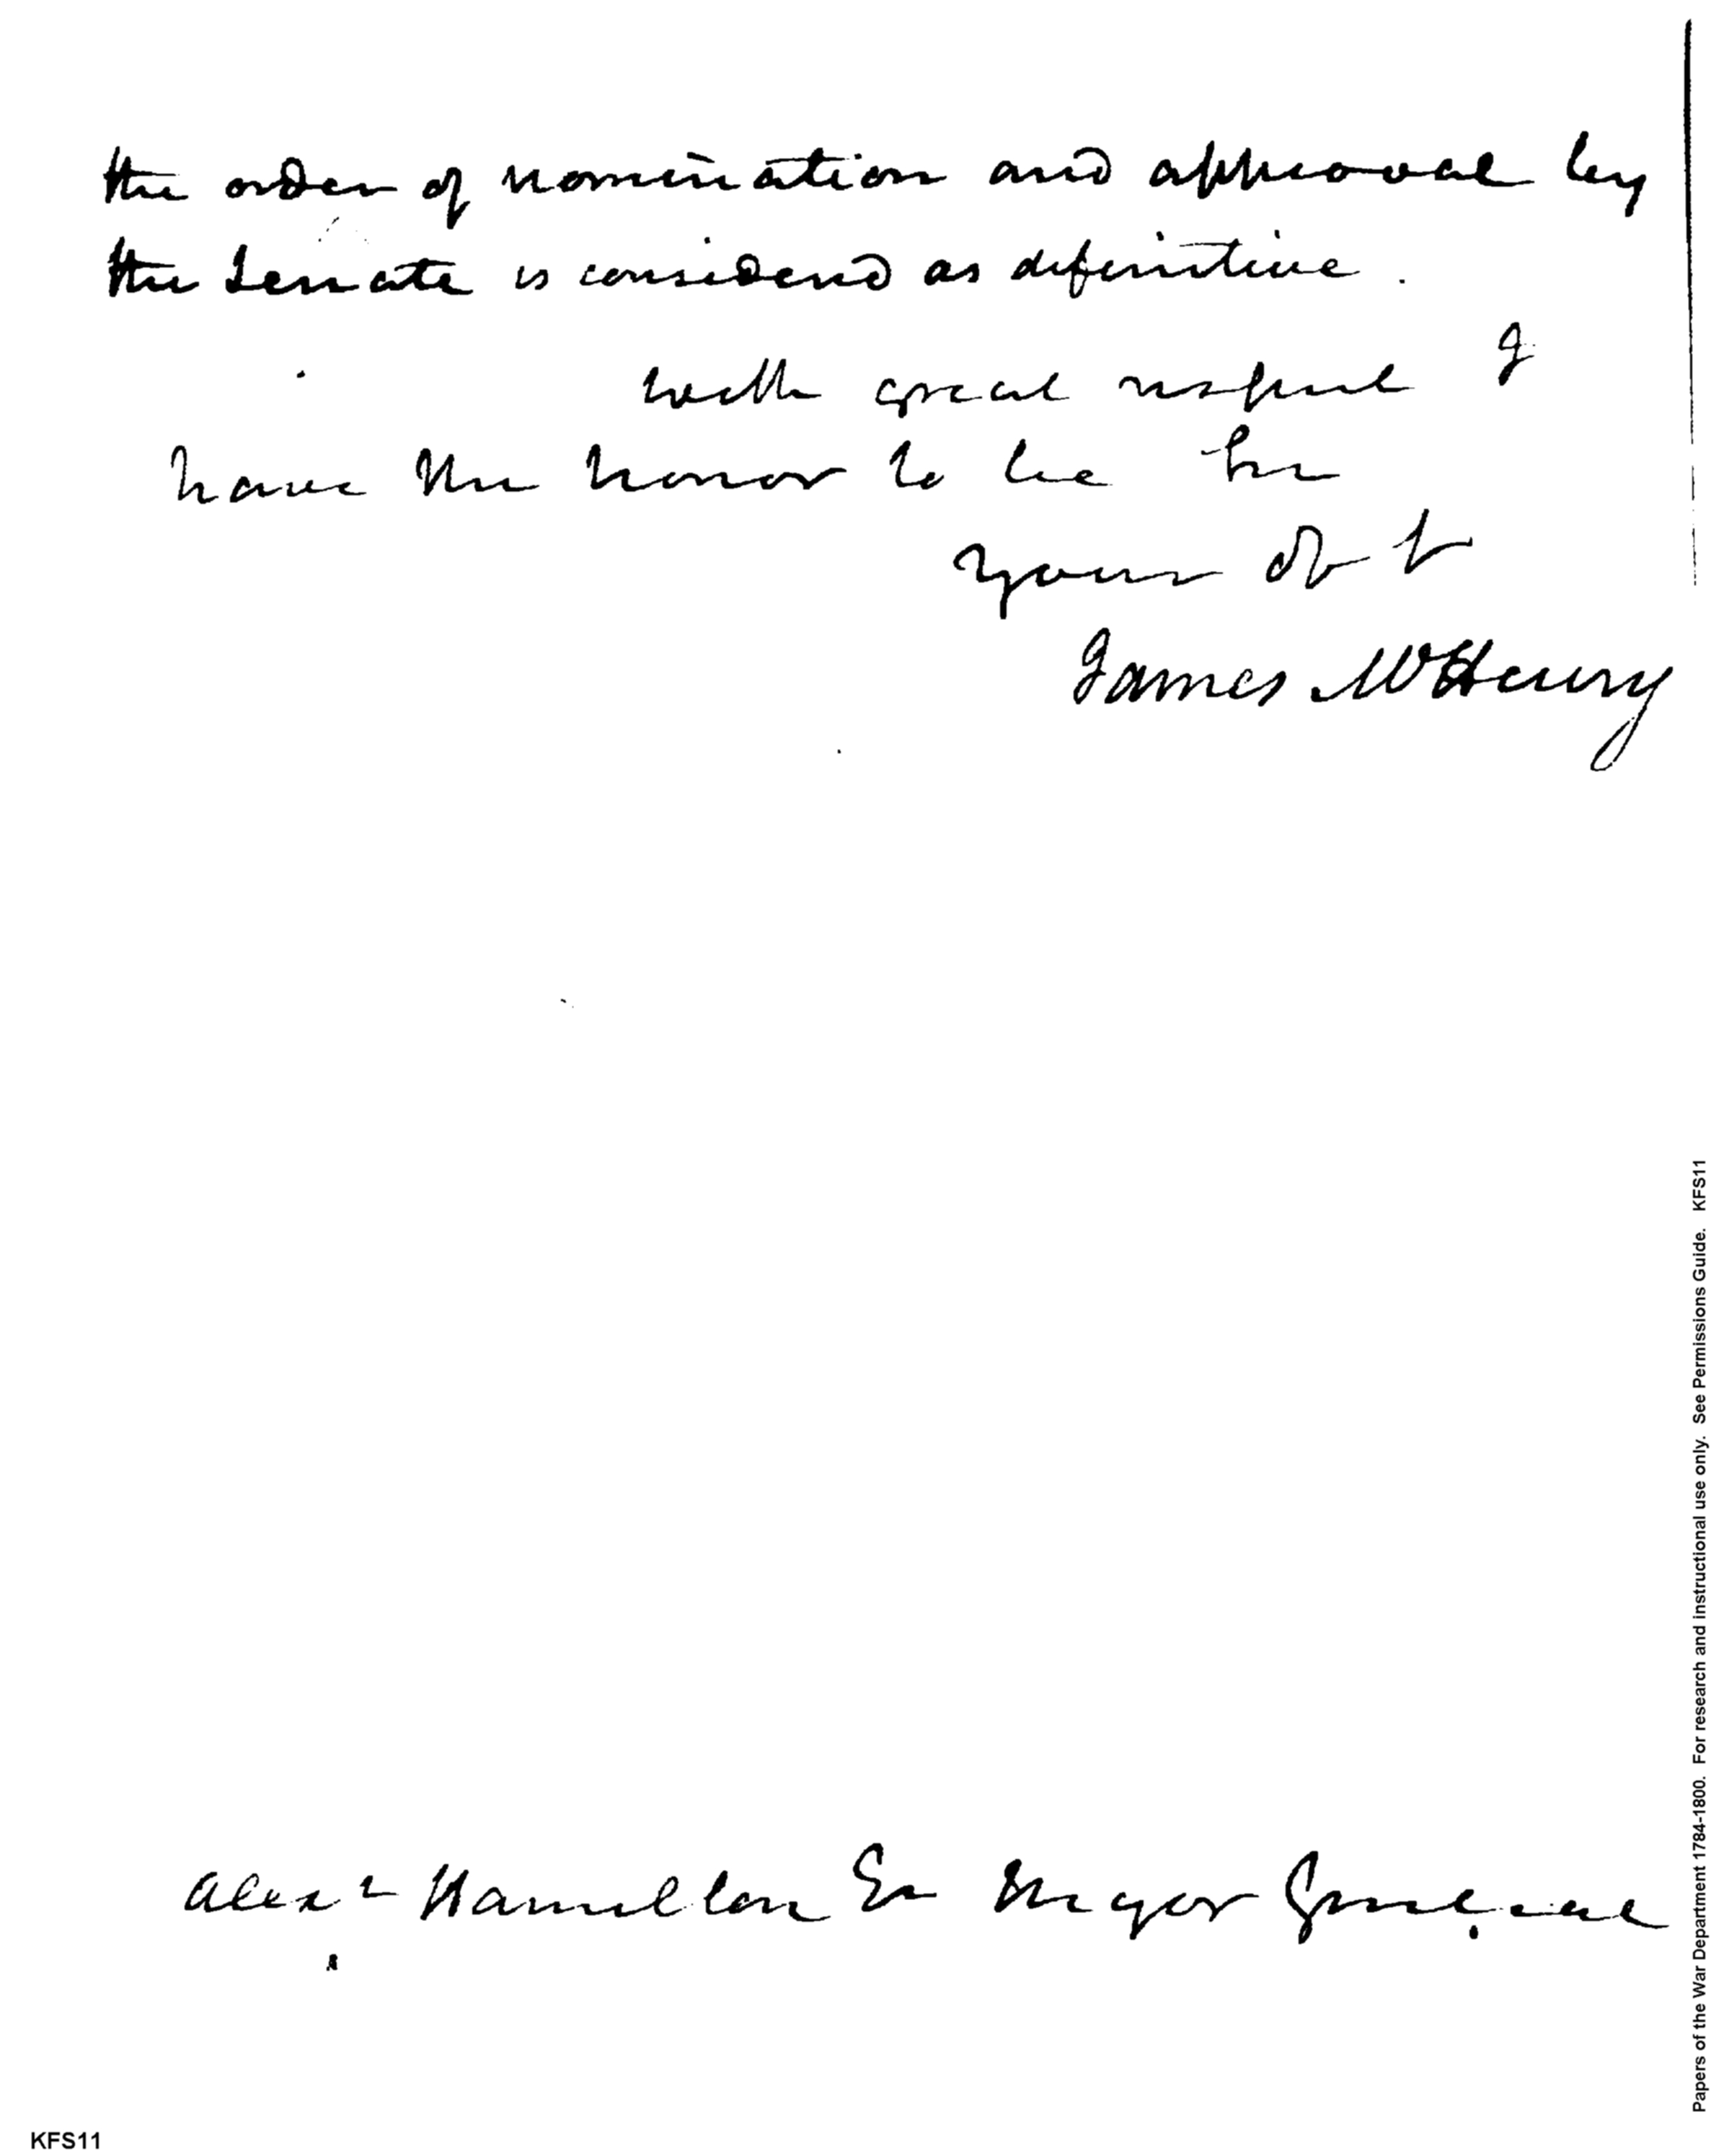 the order of nomination and approval by
the Senate is considered as definitive.
with great respect I
have the honor to be Sir
Your Ob t
James McHenry
Alexr Hamilton Esr Major General
Papers of the War Department 1784-1800. For research and instructional use only. See Permissions Guide. KFS11
KFS11